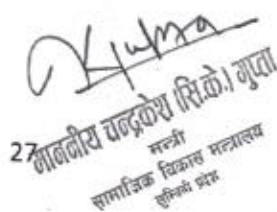 27
माननीय चन्द्रकेश (सि.के.) गुप्ता
मन्त्री
सामाजिक विकास मन्त्रालय
लुम्बिनी प्रदेश